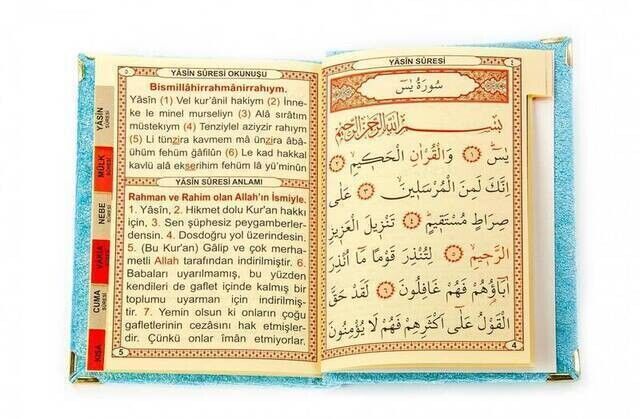 ٥
YÂSİN SÛRESİ OKUNUŞU
Bismillâhirrahmânirrahıym.
Yâsîn (1) Vel kur'ânil hakiym (2) İnne-
ke le minel murseliyn. (3) Alâ sıratim
müstekıym (4) Tenziylel aziyzir rahıym
(5) Li tünzira kavmem mâ ünzira âbâ-
ühüm fehüm ğâfilûn (6) Le kad hakkal
kavlü alâ ekserihim fehüm lâ yü'minûn
YÂSİN SÛRESİ ANLAMI
Rahman ve Rahim olan Allah'ın İsmiyle.
1. Yâsîn, 2. Hikmet dolu Kur'an hakkı
için, 3. Sen şüphesiz peygamberler-
densin. 4. Dosdoğru yol üzerindesin.
5. (Bu Kur'an) Gâlip ve çok merha-
metli Allah tarafından indirilmiştir. 6.
Babaları uyarılmamış, bu yüzden
kendileri de gaflet içinde kalmış bir
toplumu uyarman için indirilmiş-
tir. 7. Yemin olsun ki onların çoğu
gafletlerinin cezâsını hak etmişler-
dir. Çünkü onlar îmân etmiyorlar.
5
YÂSİN
SÛRESİ
MÜLK
SÛRESİ
NEBE
SÛRESİ
VAKIA
SÛRESİ
CUMA
SÛRESİ
KISA
YÂSİN SÛRESİ
٤
سُورَةُ يٰسٓ
بِسْمِ اللّٰهِ الرَّحْمٰنِ الرَّحِيمِ
يٰسٓ ﴿١﴾ وَالْقُرْاٰنِ الْحَكِيمِ ﴿٢﴾
اِنَّكَ لَمِنَ الْمُرْسَلِينَ ﴿٣﴾ عَلٰى
صِرَاطٍ مُسْتَقِيمٍ ﴿٤﴾ تَنْزِيلَ الْعَزِيزِ
الرَّحِيمِ ﴿٥﴾ لِتُنْذِرَ قَوْمًا مَٓا اُنْذِرَ
اٰبَٓاؤُ۬هُمْ فَهُمْ غَافِلُونَ ﴿٦﴾ لَقَدْ حَقَّ
الْقَوْلُ عَلٰٓى اَكْثَرِهِمْ فَهُمْ لَا يُؤْمِنُونَ
4